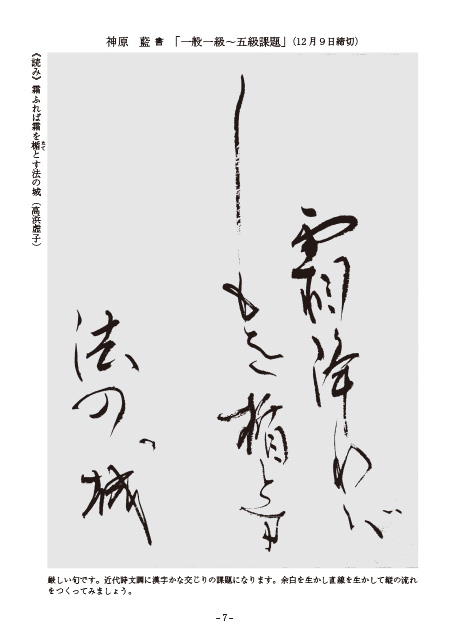 神原 藍 書 「一般一級～五級課題」(12月9日締切)
《読み》霜ふれば霜を楯とす法の城(高浜虚子)
たて
霜降れば
しもを楯とす
法の城
厳しい句です。近代詩文調に漢字かな交じりの課題になります。余白を生かし直線を生かして縦の流れ
をつくってみましょう。
-7-